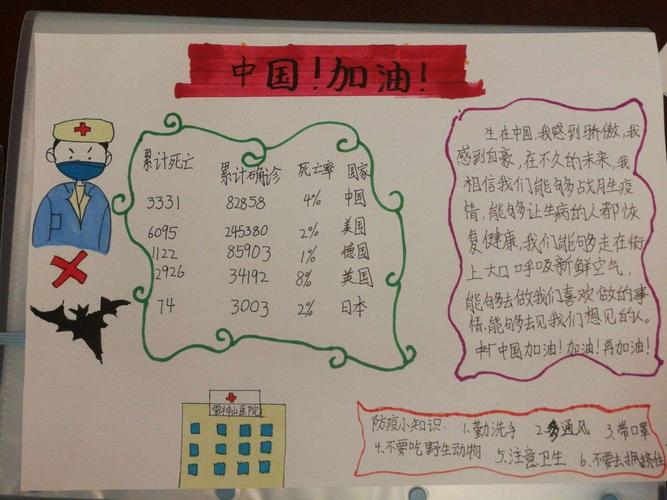 中国！加油！
累计死亡 累计确诊 死亡率 国家
3331 82858 4% 中国
6095 245380 2% 美国
1122 85903 1% 德国
2926 34192 8% 英国
74 3003 2% 日本
生在中国,我感到骄傲,我
感到自豪,在不久的未来,我
相信我们能够战胜疫
情,能够让生病的人都恢
复健康,我们能够走在街
上大口呼吸新鲜空气,
能够去做我们喜欢做的事
情,能够去见我们想见的人。
中国加油！加油！再加油！
雷神山医院
防疫小知识: 1.勤洗手 2.多通风 3.带口罩
4.不要吃野生动物 5.注意卫生 6.不要去拥挤